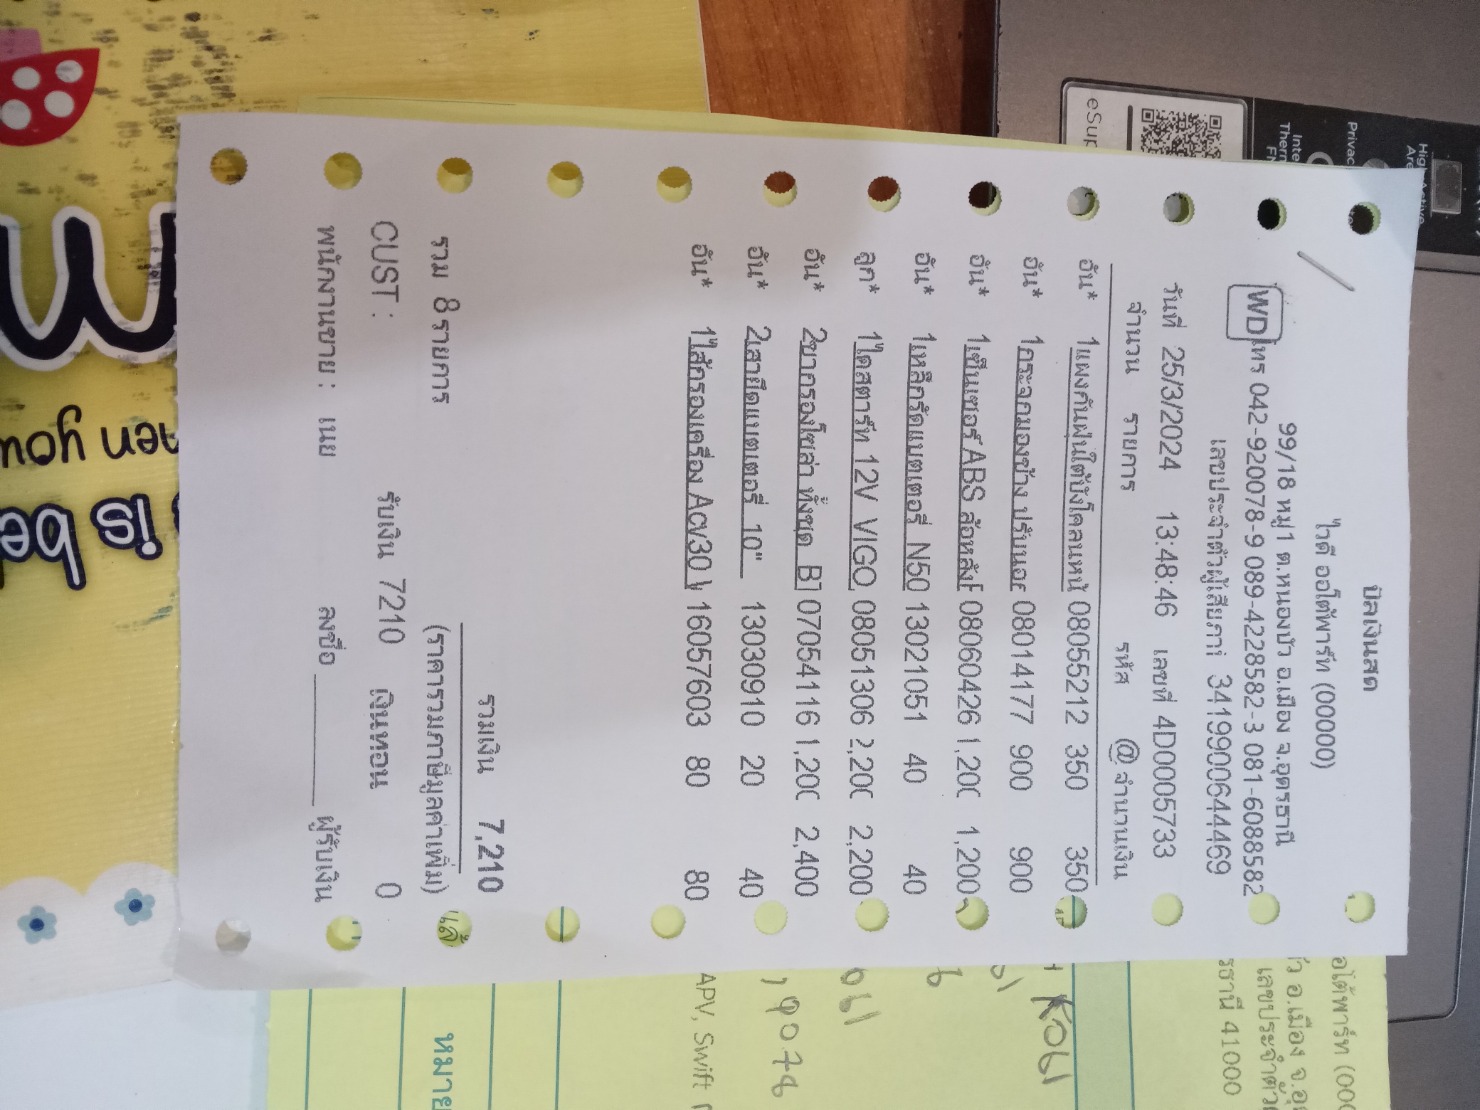 บิลเงินสด
ไวดี ออโต้พาร์ท (00000)
99/18 หมู่1 ต.หนองบัว อ.เมือง จ.อุดรธานี
WD โทร 042-920078-9 089-4228582-3 081-6088582
เลขประจำตัวผู้เสียภาษี 3419900644469
วันที่ 25/3/2024 13:48:46 เลขที่ 4D0005733
จำนวน รายการ รหัส @ จำนวนเงิน
อัน* 1แผงกันฝุ่นใต้บังโคลนหน้ 08055212 350 350
อัน* 1กระจกมองข้าง ปรับนอก 08014177 900 900
อัน* 1เซ็นเซอร์ ABS ล้อหลังF 08060426 1,200 1,200
อัน* 1เหล็กรัดแบตเตอรี่ N50 13021051 40 40
ลูก* 1ไดสตาร์ท 12V VIGO 08051306 2,200 2,200
อัน* 2ขากรองโซล่า ทั้งชุด B1 07054116 1,200 2,400
อัน* 2เสายึดแบตเตอรี่ 10" 13030910 20 40
อัน* 1ไส้กรองเครื่อง Acv30 16057603 80 80
รวมเงิน 7,210
รวม 8 รายการ (ราคารวมภาษีมูลค่าเพิ่ม)
CUST : รับเงิน 7210 เงินทอน 0
พนักงานขาย : เนย ลงชื่อ ผู้รับเงิน
eSup
Privac
Inte
Ther
อโต้พาร์ท (000
อ.เมือง จ.อุ
เลขประจำตัว
รธานี 41000
KO61
061
19078
APV, Swift
หมาย
is be
en you